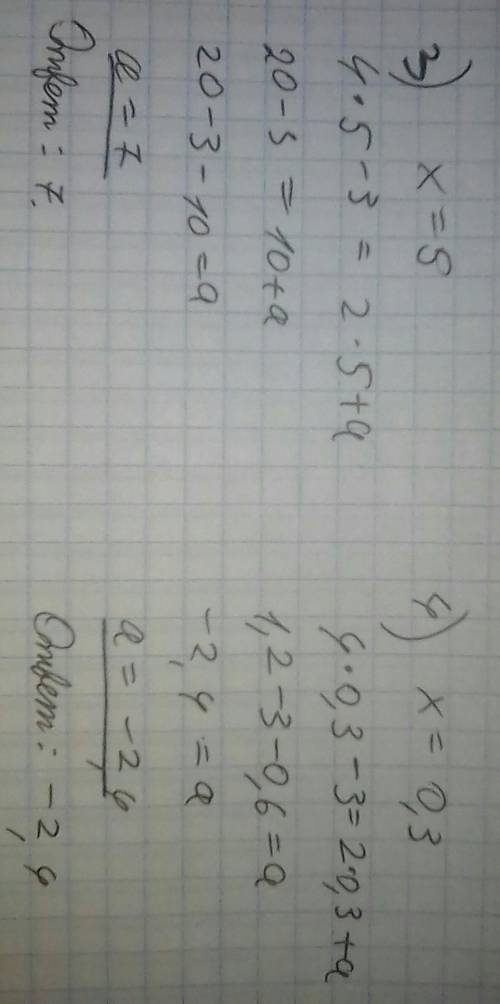 3) x = 5
4·5-3 = 2·5+a
20-3 = 10+a
20-3-10=a
a = 7
Ответ: 7.
4) x = 0,3
4·0,3-3=2·0,3+a
1,2-3-0,6=a
-2,4 = a
a = -2,4
Ответ: -2,4